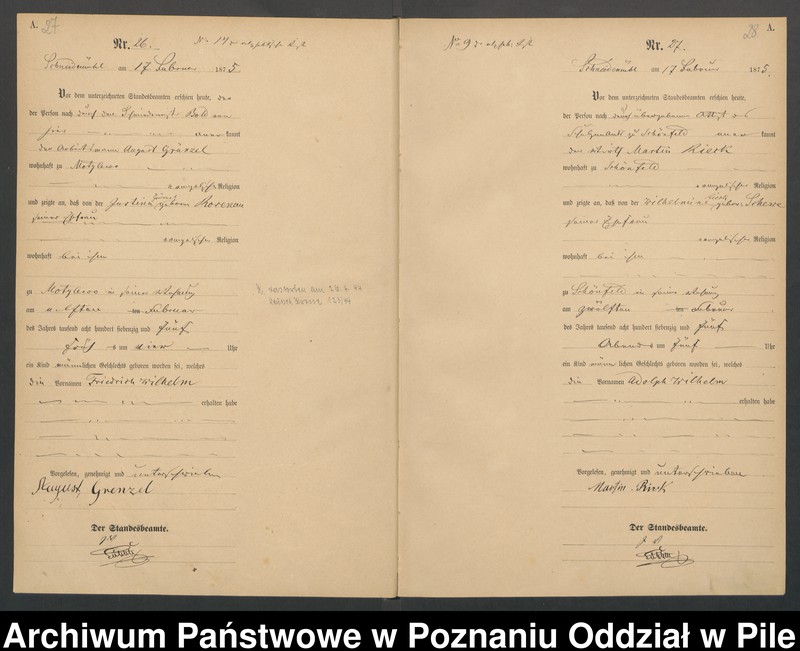 A.
27
Nr. 26.
Schneidemühl am 17 Februar 1875.
Vor dem unterzeichneten Standesbeamten erschien heute, der
der Person nach durch den
kannt
der Arbeitsmann August Grenzel
wohnhaft zu Motylewo
evangelischer Religion
und zeigte an, daß von der Justina geborne Rosenau
seiner Ehefrau
evangelischer Religion
wohnhaft bei ihm
zu Motylewo in seiner Wohnung
am elften Februar
des Jahres tausend acht hundert siebenzig und fünf
früh um vier Uhr
ein Kind männlichen Geschlechts geboren worden sei, welches
die Vornamen Friedrich Wilhelm
erhalten habe
Vorgelesen, genehmigt und unterschrieben
August Grenzel
Der Standesbeamte.
28
A.
Nr. 27.
Schneidemühl am 17 Februar 1875.
Vor dem unterzeichneten Standesbeamten erschien heute,
der Person nach durch übergebenen Attest des
Schulzenamts zu Schönfeld kannt
der Martin Rierk
wohnhaft zu Schönfeld
evangelischer Religion
und zeigte an, daß von der Wilhelmine geborne
seiner Ehefrau
evangelischer Religion
wohnhaft bei ihm
zu Schönfeld in seiner Wohnung
am zwölften Februar
des Jahres tausend acht hundert siebenzig und fünf
Abends um fünf Uhr
ein Kind männlichen Geschlechts geboren worden sei, welches
die Vornamen Adolph Wilhelm
erhalten habe
Vorgelesen, genehmigt und unterschrieben
Martin
Der Standesbeamte.
Archiwum Państwowe w Poznaniu Oddział w Pile